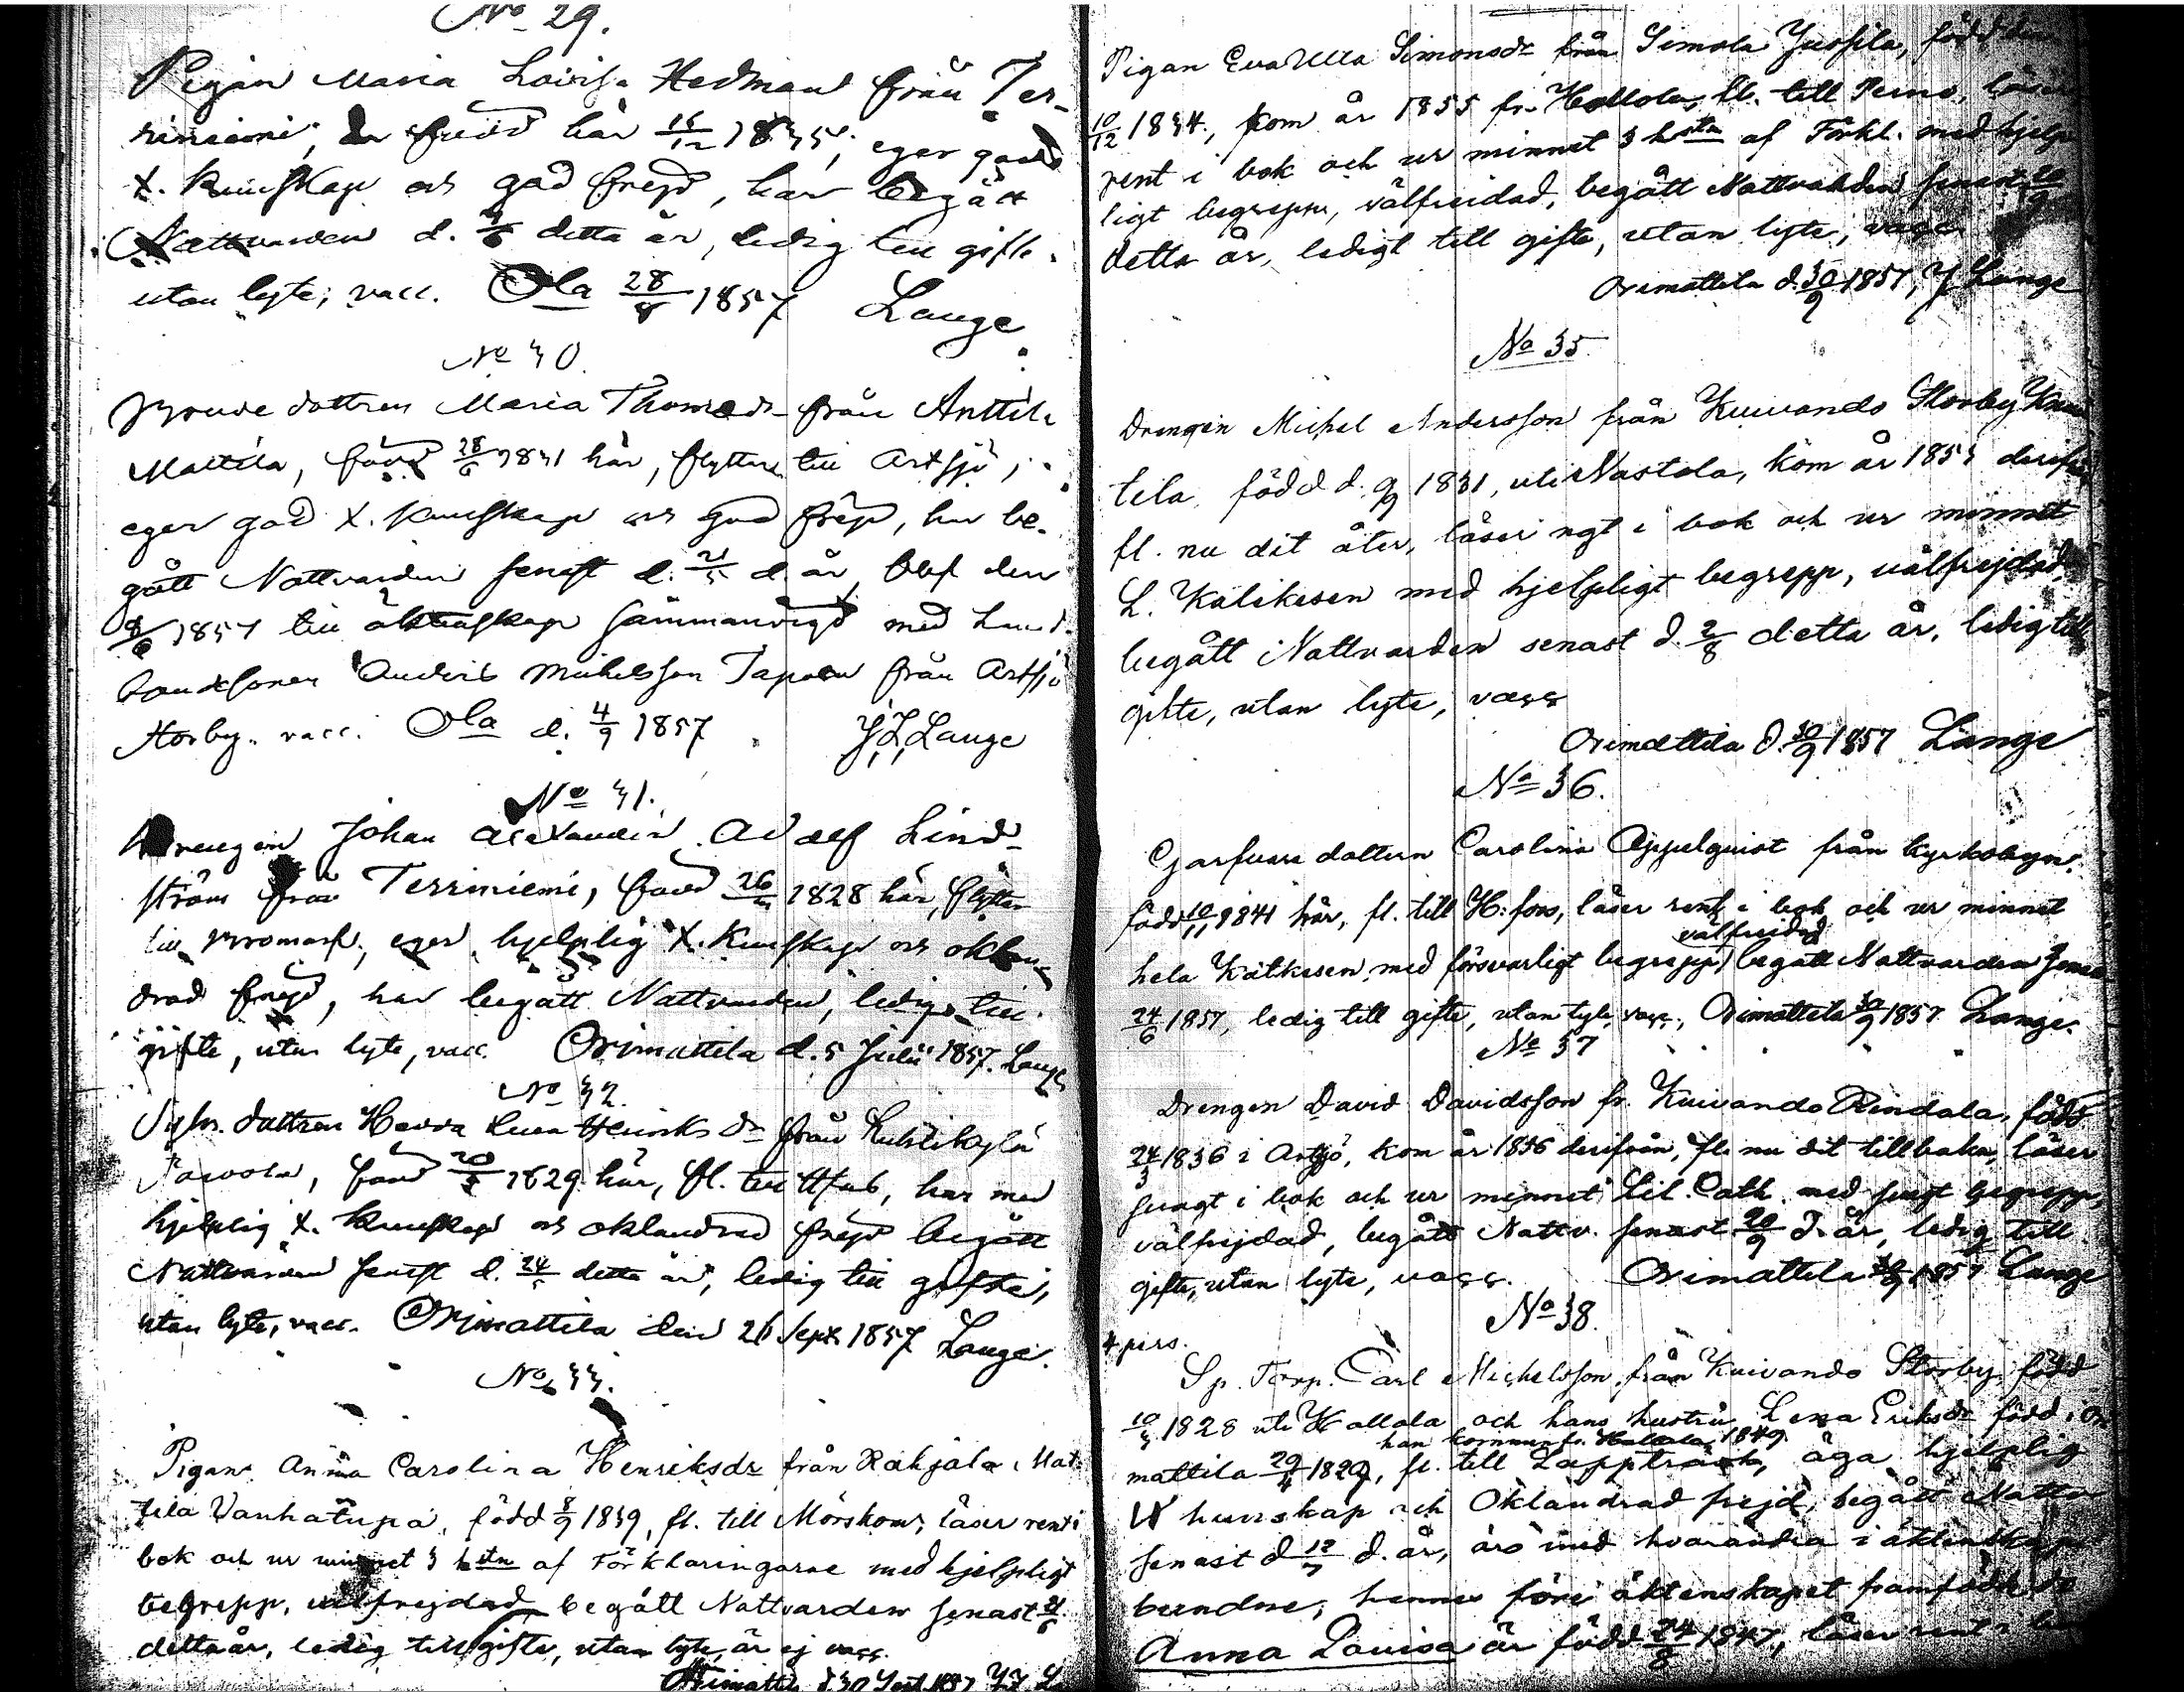 No 29.
Pigan Maria Lovisa Hedman från Ter-
riniemi, född här 15/12 1835, eger god
X. kunskap och god frejd, har begått
Nattvarden d. detta år, ledig till gifte,
utan lyte; vacc. Ola 28/8 1857 Lange
No 30.
dottren Maria Thomasdr från Anttila
Mattila, född 28/6 1831 här, flyttar till Artsjö,
eger god X. kunskap och god frejd, har be-
gått Nattvarden senast d. 21/5 d. år, blef den
1857 till äktenskap sammanvigd med Land-
bondsonen Anders Michelsson Tapola från Artsjö
Storby. vacc. Ola d. 4/9 1857 J. L. Lange
No 31.
Drengen Johan Alexander Adolf Lind-
ström från Terriniemi, född 1828 här, flyttar
till eger hjelplig X. kunskap och oklan-
drad frejd, har begått Nattvarden, ledig till
gifte, utan lyte, vacc. Orimattila d. 5 Julii 1857. Lange
No 32.
dottren Hedda Lena Henriksdr från Luhtikylä
född 1829 här, fl. till Hfors, har med
hjelplig X. kunskap och oklandrad frejd begått
Nattvarden senast d. detta år, ledig till gifte,
utan lyte, vacc. Orimattila den 26 Sept 1857 Lange.
No 33.
Pigan Anna Carolina Henriksdr från Rakjala, Mat
tila Vanhatupa, född 8/9 1839, fl. till Mörskom, läser rent i
bok och ur minnet 3 hstn af Förklaringarne med hjelpligt
begrepp, välfrejdad, begått Nattvarden senast
detta år, ledig till gifte, utan lyte, är ej vacc.
Orimattila d 30 Sept 1857 J L
Pigan Eva Ulla Simonsdr från Simola Jussila, född den
10/12 1834, kom år 1855 fr. Hollola, fl. till Perno, läser
rent i bok och ur minnet 3 hstn af Förkl. med hjelp-
ligt begrepp, välfreidad, begått Nattvarden senast
detta år, ledigt till gifte, utan lyte, vacc
Orimattila d. 30/9 1857, J Lange
No 35.
Drengen Michel Andersson från Kuivando Storby
tila, född d. 1831, uti Nastola, kom år 1853 derifrån
fl. nu dit åter, läser ngt i bok och ur minnet
L. Katikesen med hjelpligt begrepp, välfrejdad,
begått Nattvarden senast d. 2/8 detta år, ledig till
gifte, utan lyte, vacc
Orimattila d. 30/9 1857 Lange
No 36.
Garfvare dottern Carolina Appelquist från Kyrkobyn,
född 10/11 1841 här, fl. till H:fors, läser rent i bok och ur minnet
välfreidad
hela Katkesen med försvarligt begrepp, begått Nattvarden senast
24/6 1857, ledig till gifte, utan lyte, vacc, Orimattila 30/9 1857 Lange.
No 37
Drengen David Davidsson fr. Kuivando Rindala, född
24/3 1836 i Artsjö, kom år 1856 derifrån, fl. nu dit tillbaka, läser
svagt i bok och ur minnet Lil. Cath. med svagt begrepp,
välfrejdad, begått Nattv. senast 20/9 d. år, ledig till
gifte, utan lyte, vacc. Orimattila 30/9 1857 Lange
No 38.
4 pers.
Sp. Torp. Carl Michelsson från Kuivando Storby, född
10/3 1828 uti Hollola och hans hustru Lena Eriksdr född i Ori
han kommen fr. Hollola 1849.
mattila 29/4 1829, fl. till Lappträsk, äga hjelplig
kunskap och Oklandrad frejd, begått Nattv
senast d 12/7 d. år, äro med hvarandra i äktenskap
bundne; hennes före äktenskapet framfödda
Anna Lovisa är född 24/8 1847, läser rent i